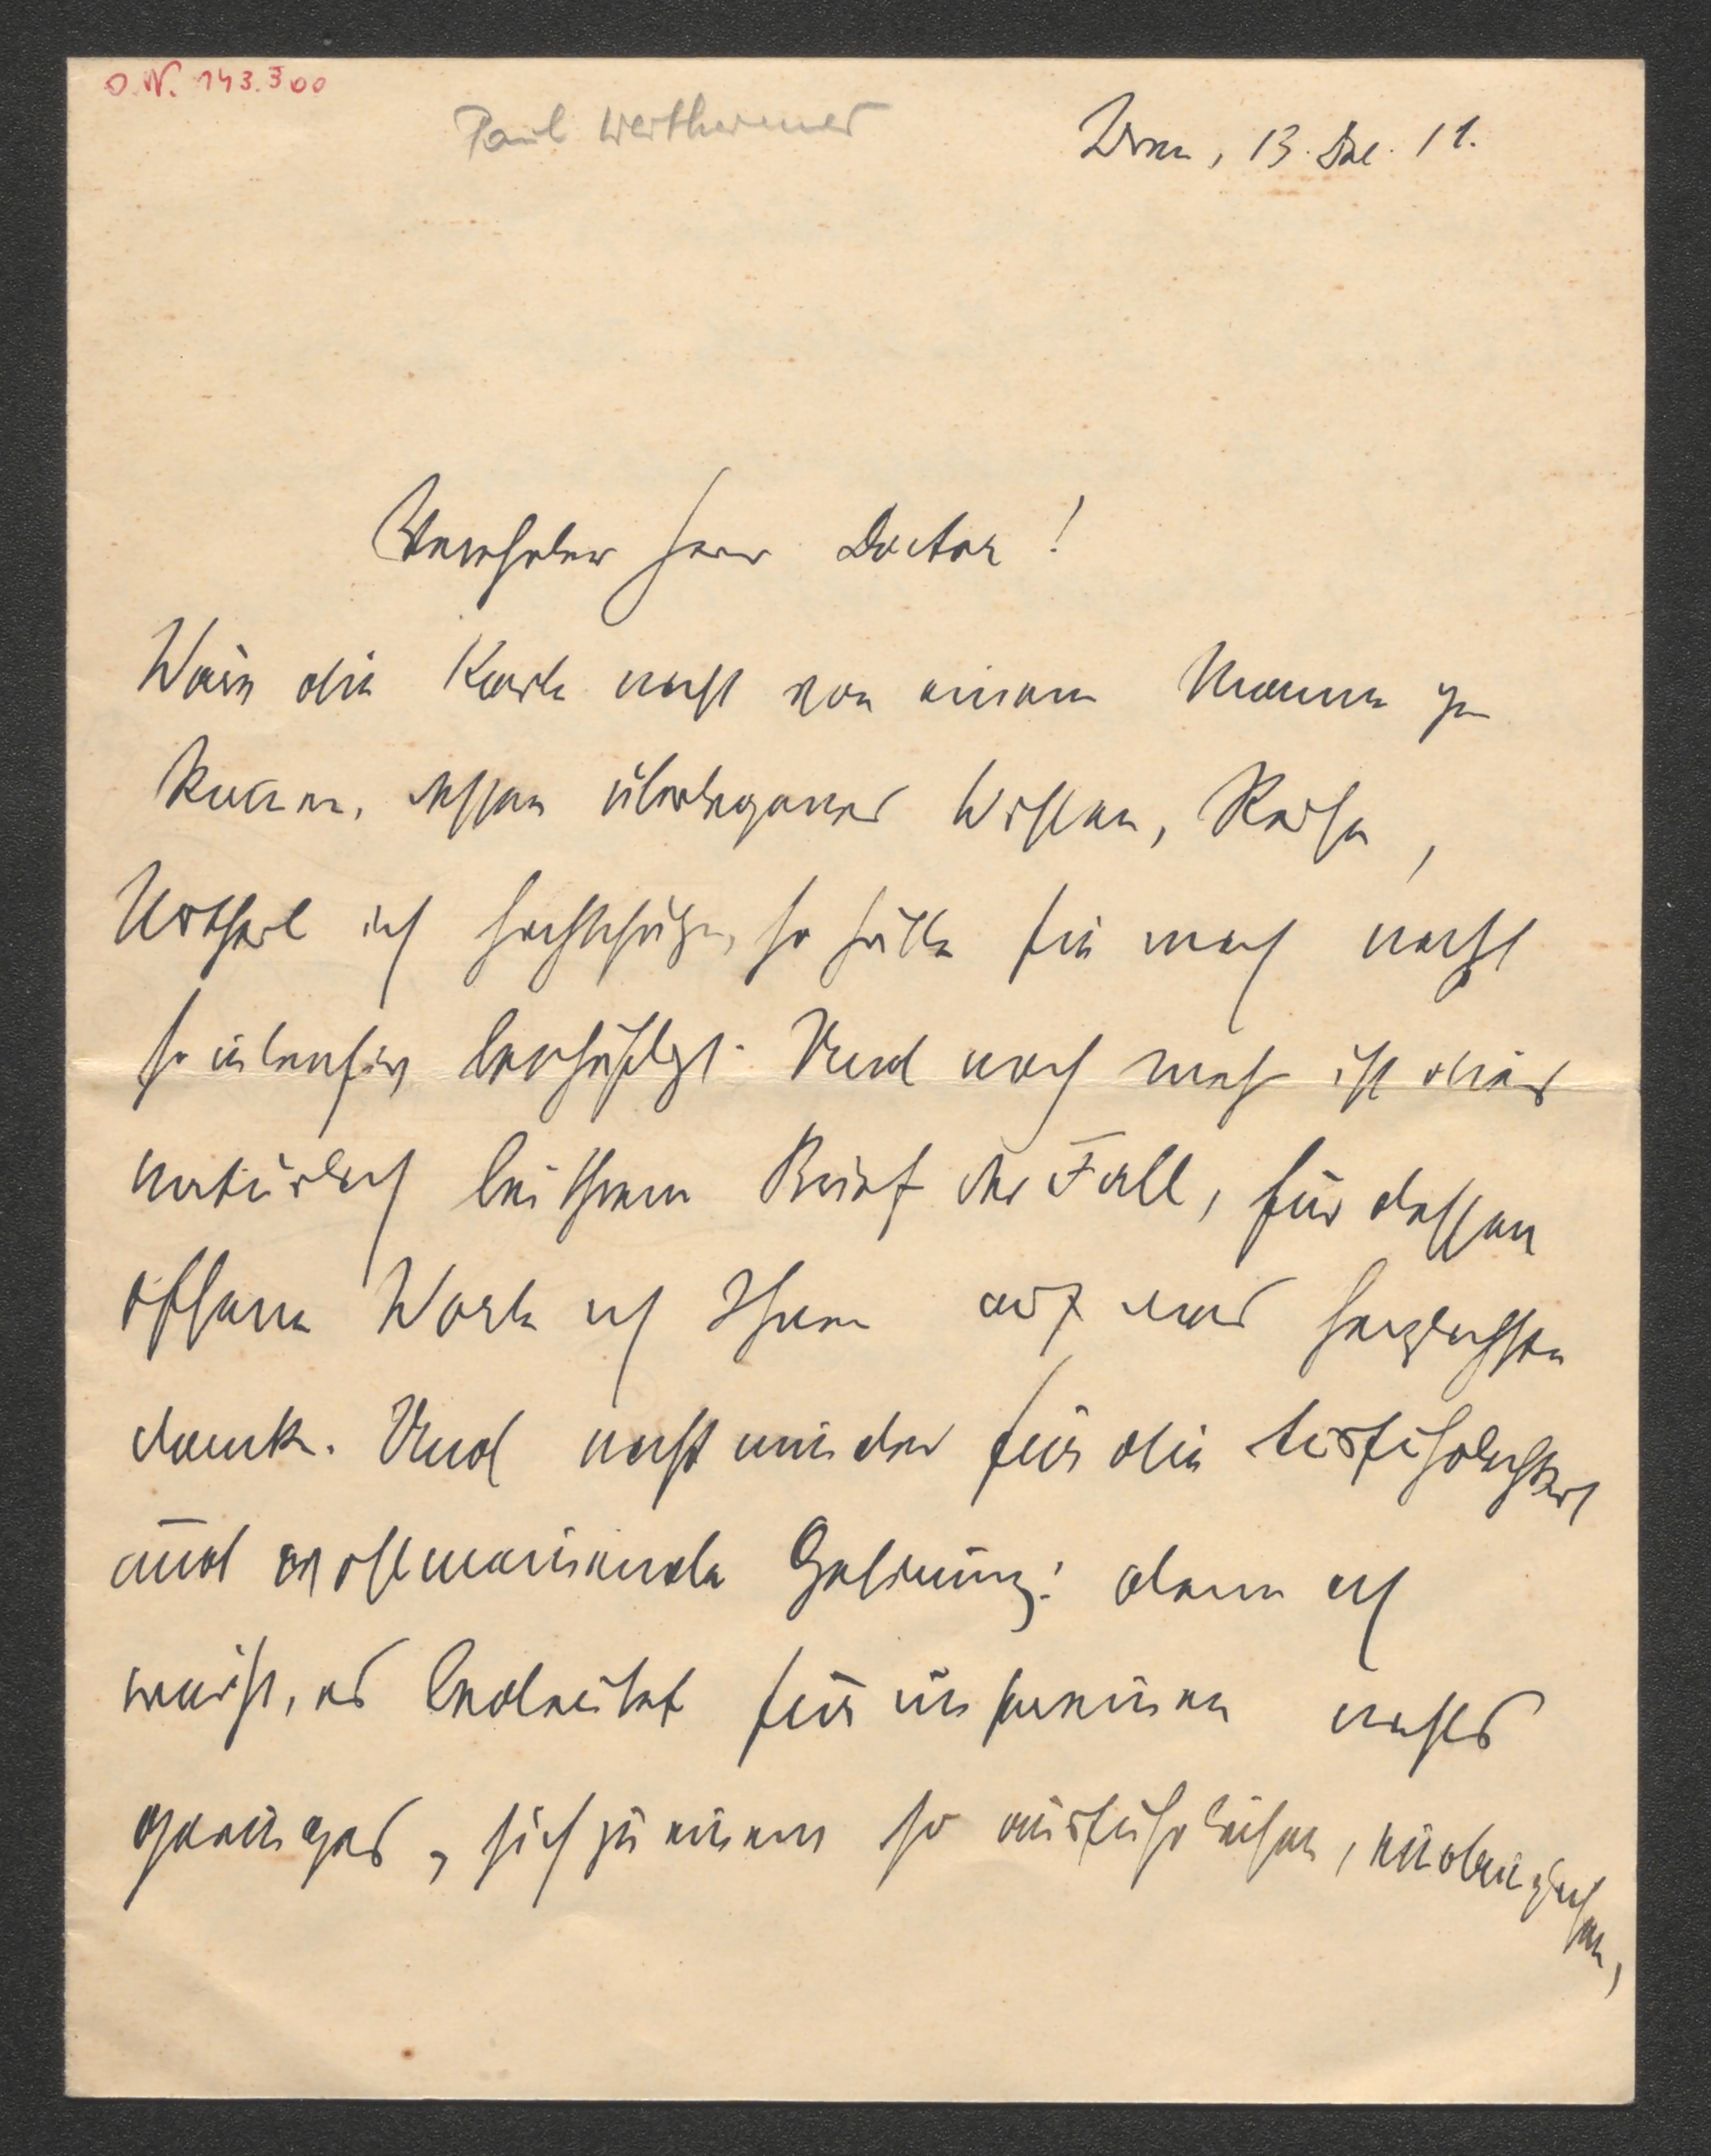 O.N. 143.300
Paul Wertheimer
Wien, 13. Dez. 11.
Verehrter Herr Doctor!
Wäre die Karte nicht von einem Manne ge-
kommen, dessen überlegenes Wissen, Reife,
Urtheil ich hochschätze, so hätte sie mich nicht
so beschäftigt. Und noch mehr ist dies
natürlich bei Ihrem Brief der Fall, für dessen
offene Worte ich Ihnen aufs herzlichsten
danke. Und nicht minder für die Ausführlichkeit
und Gesinnung: denn ich
weiß, es bedeutet für unsereinen nichts
geringes, sich zu einem so ausführlichen,